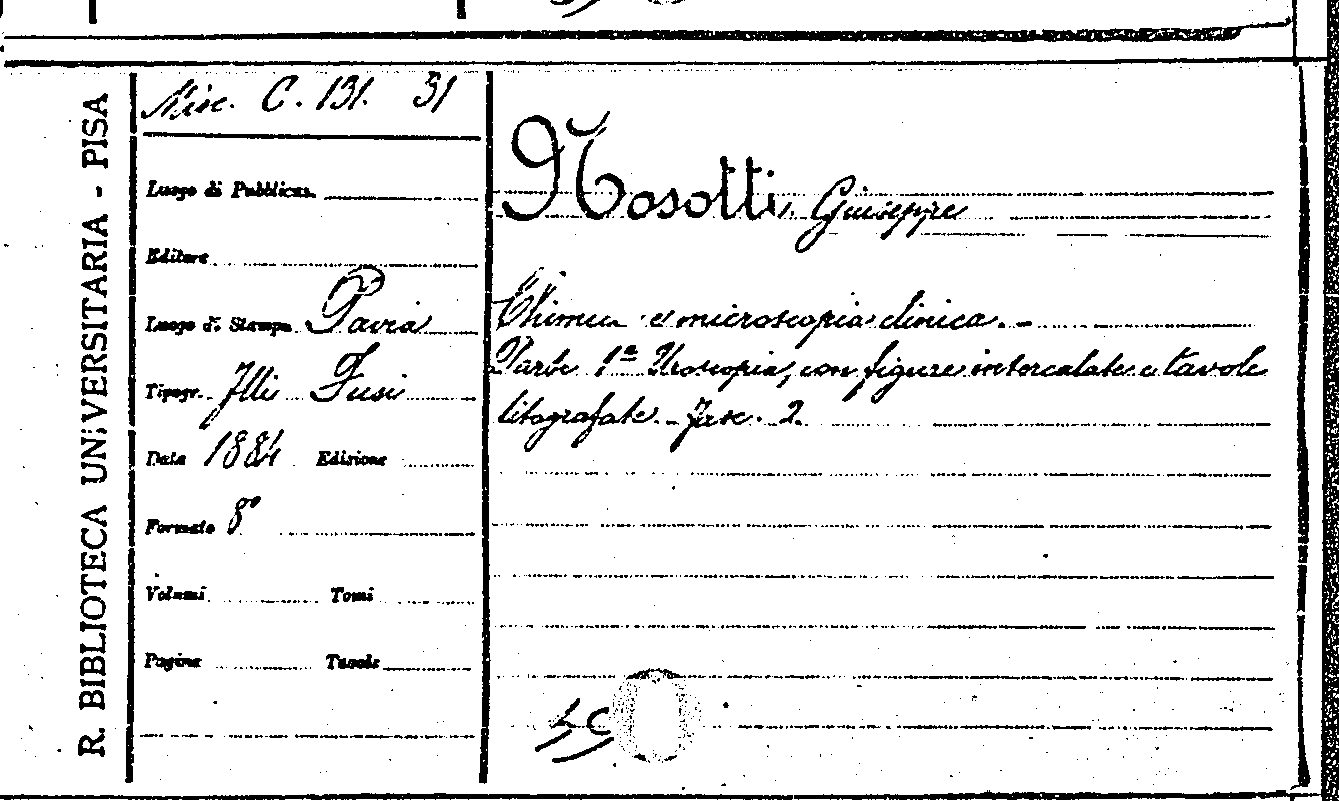 R. BIBLIOTECA UNIVERSITARIA - PISA
Misc. C. 131. 31
Luogo di Pubblicaz.
Editore
Luogo di Stampa Pavia
Tipogr. Flli Fusi
Data 1884 Edizione
Formato 8°
Volumi Tomi
Pagine Tavole
Nosotti Giuseppe
Chimica e microscopia clinica. -
Parte 1ª Uroscopia, con figure intercalate e tavole
litografate. - Fasc. 2.